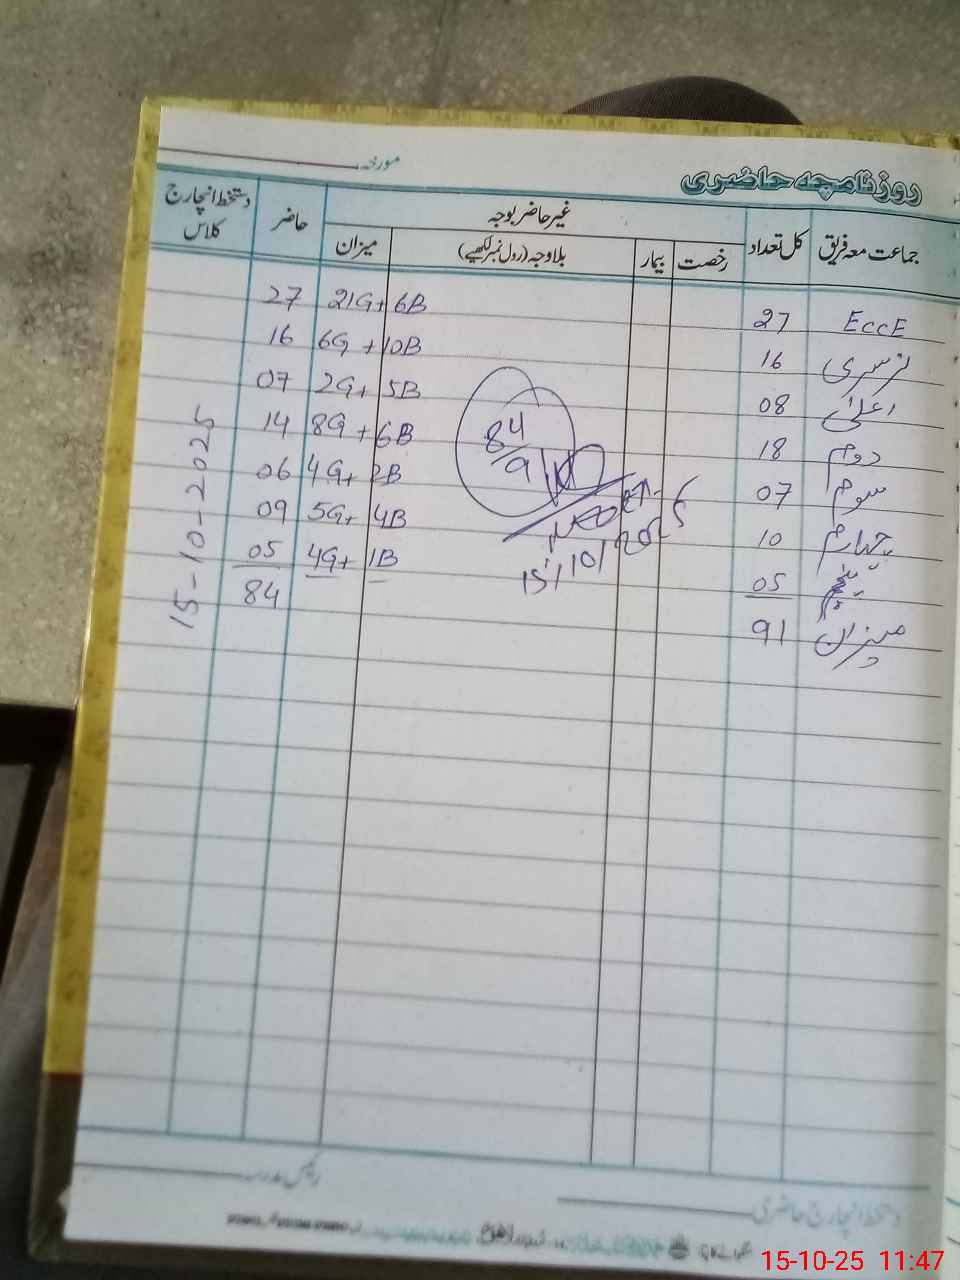 روزنامچہ حاضری
مورخہ
جماعت معہ فریق کل تعداد غیر حاضر بوجہ حاضر دستخط انچارج کلاس
رخصت بیمار بلاوجہ (رول نمبر لکھیے) میزان
EccE 27 21G+6B 27
نرسری 16 6G+10B 16
اعلیٰ 08 2G+5B 07
دوم 18 8G+6B 14
سوم 07 4G+2B 06
چہارم 10 5G+4B 09
پنجم 05 4G+1B 05
میزان 91 84
84/91
15/10/2025
15-10-2025
دستخط انچارج حاضری
رئیس مدرسہ
15-10-25 11:47